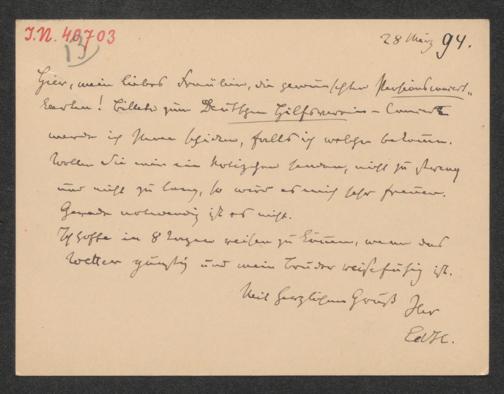 I.N. 46703
13
28 März 94.
Hier, mein liebes Fräulein, die gewünschten Pensionsconcert-
karten! Billete zum Deutschen Hilfsverein-Concert
werde ich Ihnen schicken, falls ich welche bekomme.
Wollen Sie mir ein Notizchen senden, nicht zu streng
und nicht zu lang, so wird es mich sehr freuen.
Gerade notwendig ist es nicht.
Ich hoffe in 8 Tagen reisen zu können, wenn das
Wetter günstig und mein Bruder reisefähig ist.
Mit herzlichem Gruß Ihr
EdH.